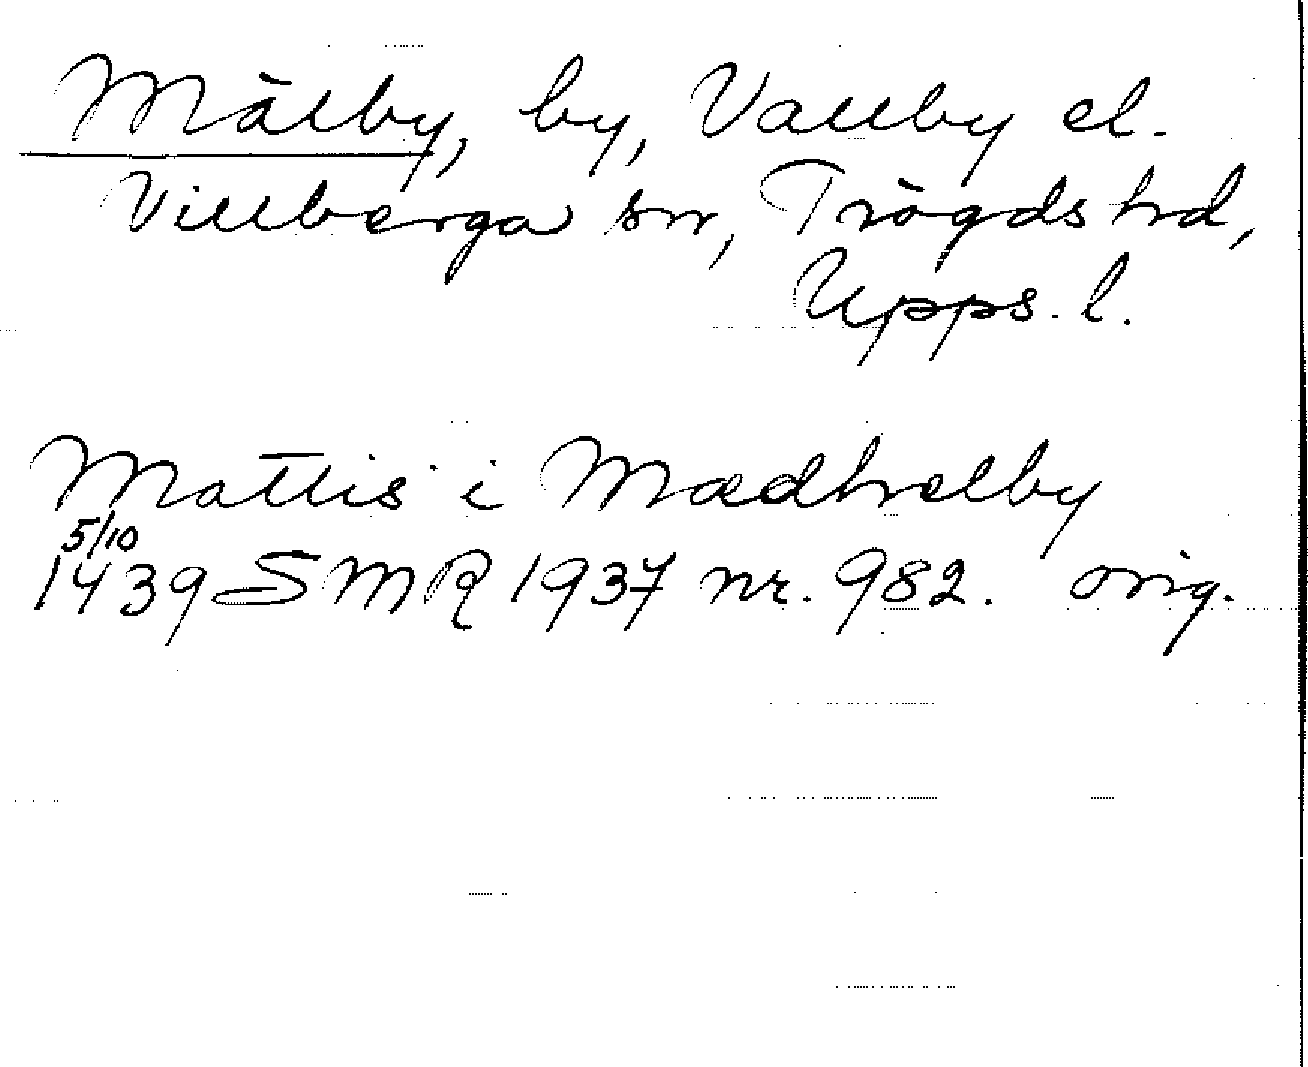 Mälby, by, Vallby el.
Villberga snr, Trögds hd,
Upps. l.
Mattis i Mædhælby
5/10
1439 SMR 1937 nr. 982. orig.